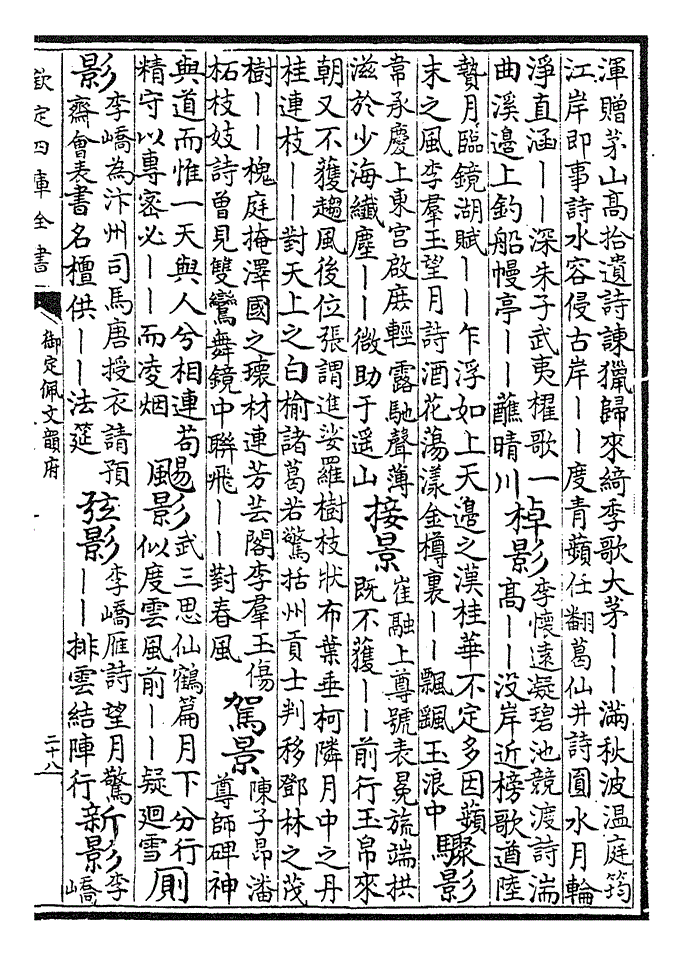 渾贈茅山高拾遺詩諫獵歸來綺季歌大茅丨丨滿秋波温庭筠
江岸即事詩水容侵古岸丨丨度青蘋任翻葛仙井詩圓水月輪
淨直涵丨丨深朱子武夷櫂歌一
曲溪邊上釣船幔亭丨丨蘸晴川
棹影
李懷遠凝碧池競渡詩湍
高丨丨没岸近榜歌遒陸
贄月臨鏡湖賦丨丨乍浮如上天邊之漢桂華不定多因蘋
末之風李羣玉望月詩酒花蕩漾金樽裏丨丨飄颻玉浪中
驟影
韋承慶上東宮啟庶輕露馳聲薄
滋於少海纖塵丨丨微助于遥山
接景
崔融上尊號表冕旒端拱
既不獲丨丨前行玉帛來
朝又不獲趨風後位張謂進娑羅樹枝狀布葉垂柯隣月中之丹
桂連枝丨丨對天上之白榆諸葛若驚括州貢士判移鄧林之茂
樹丨丨槐庭掩澤國之瓌材連芳芸閣李羣玉傷
柘枝妓詩曾見雙鸞舞鏡中聯飛丨丨對春風
駕景
陳子昂潘
尊師碑神
與道而惟一天與人兮相連苟
精守以專密必丨丨而凌烟
颺影
武三思仙鶴篇月下分行
似度雲風前丨丨疑迴雪
厠
影
李嶠為汴州司馬唐授衣請預
齋會表書名檀供丨丨法筵
弦影
李嶠雁詩望月驚
丨丨排雲結陣行
新影
李
嶠
欽定四庫全書
御定佩文韻府
二十八